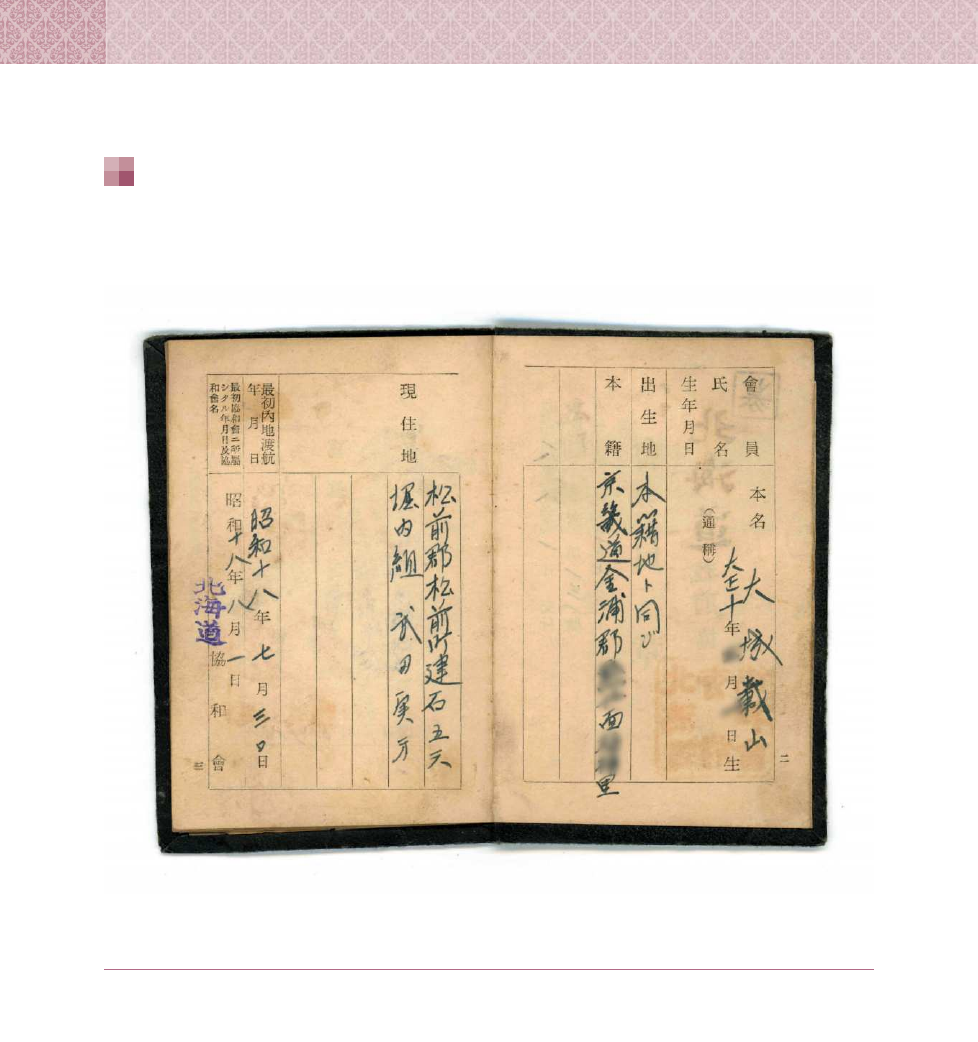 會員
氏名
本名
(通稱)
大塚載山
生年月日
大正十年 月 日生
出生地
本籍地ト同ジ
本籍
京畿道金浦郡 面 里
二
現住地
松前郡松前町建石五六
堀内組 武田 方
最初内地渡航年月日
昭和十八年七月三〇日
最初協和會ニ所屬シタル年月日及協和會名
昭和十八年八月一日
北海道協和會
三